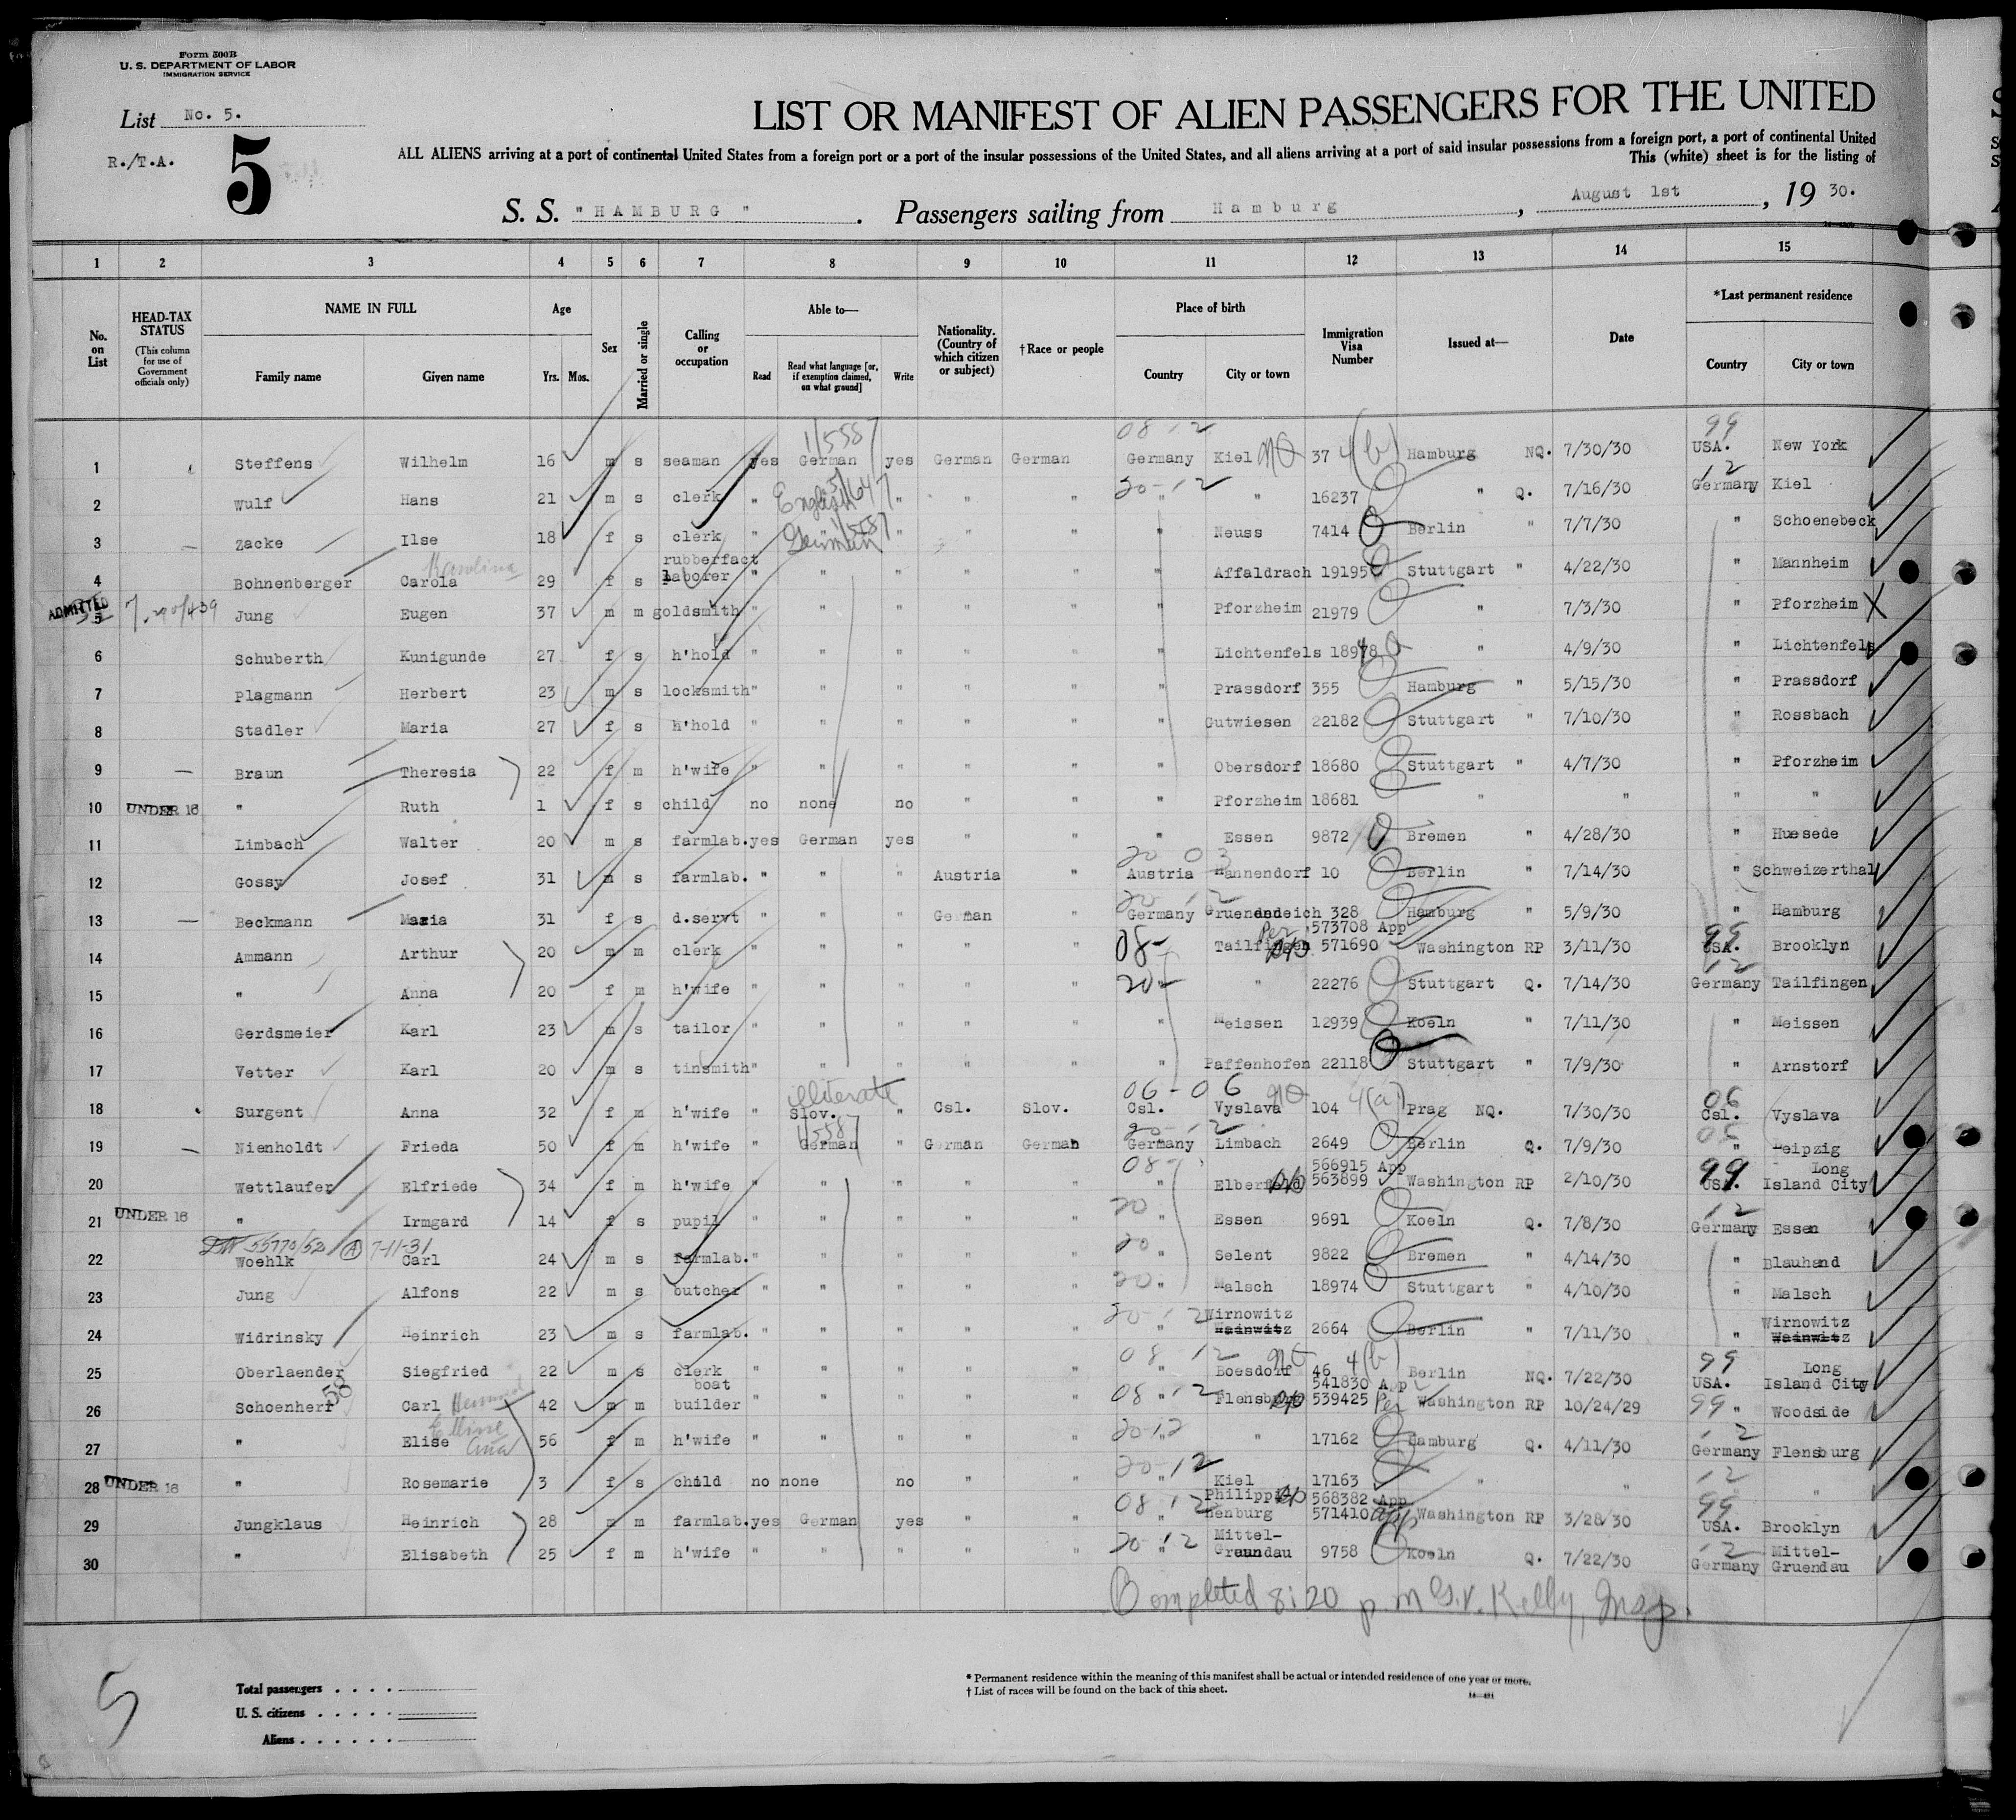 Form 500B
U. S. DEPARTMENT OF LABOR
IMMIGRATION SERVICE
List No. 5.
R./T.A.
5
LIST OR MANIFEST OF ALIEN PASSENGERS FOR THE UNITED
ALL ALIENS arriving at a port of continental United States from a foreign port or a port of the insular possessions of the United States, and all aliens arriving at a port of said insular possessions from a foreign port, a port of continental United
This (white) sheet is for the listing of
S. S. "HAMBURG". Passengers sailing from Hamburg, August 1st, 19 30.
1 2 3 4 5 6 7 8 9 10 11 12 13 14 15
No. on List
HEAD-TAX STATUS
(This column for use of Government officials only)
NAME IN FULL
Family name Given name
Age
Yrs. Mos.
Sex
Married or single
Calling or occupation
Able to—
Read Read what language [or, if exemption claimed, on what ground] Write
Nationality. (Country of which citizen or subject)
†Race or people
Place of birth
Country City or town
Immigration Visa Number
Issued at—
Date
*Last permanent residence
Country City or town
08 12 99
1 Steffens Wilhelm 16 m s seaman yes German yes German German Germany Kiel NQ 37 4(b) Hamburg NQ. 7/30/30 USA. New York
20-12 12
2 Wulf Hans 21 m s clerk " English " " " " " 16237 " Q. 7/16/30 Germany Kiel
3 Zacke Ilse 18 f s clerk " " German " " " " Neuss 7414 Berlin " 7/7/30 " Schoenebeck
Karolina rubberfact
4 Bohnenberger Carola 29 f s laborer " " " " " " Affaldrach 19195 Stuttgart " 4/22/30 " Mannheim
ADMITTED
5 Jung Eugen 37 m m goldsmith " " " " " " Pforzheim 21979 " 7/3/30 " Pforzheim X
6 Schuberth Kunigunde 27 f s h'hold " " " " " " Lichtenfels 18978 " 4/9/30 " Lichtenfels
7 Plagmann Herbert 23 m s locksmith " " " " " " Prassdorf 355 Hamburg " 5/15/30 " Prassdorf
8 Stadler Maria 27 f s h'hold " " " " " " Gutwiesen 22182 Stuttgart " 7/10/30 " Rossbach
9 Braun Theresia 22 f m h'wife " " " " " " Obersdorf 18680 Stuttgart " 4/7/30 " Pforzheim
10 UNDER 16 " Ruth 1 f s child no none no " " " Pforzheim 18681 " " " "
11 Limbach Walter 20 m s farmlab. yes German yes " " " Essen 9872 Bremen " 4/28/30 " Huesede
20 03
12 Gossy Josef 31 m s farmlab. " " " Austria " Austria Hannendorf 10 Berlin " 7/14/30 " Schweizerthal
20 12
13 Beckmann Maria 31 f s d.servt " " " German " Germany Gruendendeich 328 Hamburg " 5/9/30 " Hamburg
Per 573708 App 99
14 Ammann Arthur 20 m m clerk " " " " " 08- Tailfingen 571690 Washington RP 3/11/30 USA. Brooklyn
12
15 " Anna 20 f m h'wife " " " " " 20- " 22276 Stuttgart Q. 7/14/30 Germany Tailfingen
16 Gerdsmeier Karl 23 m s tailor " " " " " " Meissen 12939 Koeln " 7/11/30 " Meissen
17 Vetter Karl 20 m s tinsmith " " " " " " Paffenhofen 22118 Stuttgart " 7/9/30 " Arnstorf
illiterate 06-06 NQ 06
18 Surgent Anna 32 f m h'wife " Slov. " Csl. Slov. Csl. Vyslava 104 4(a) Prag NQ. 7/30/30 Csl. Vyslava
20-12
19 Nienholdt Frieda 50 f m h'wife " German " German German Germany Limbach 2649 Berlin Q. 7/9/30 " Leipzig
08 566915 App 99 Long
20 Wettlaufer Elfriede 34 f m h'wife " " " " " " Elberfeld 563899 Washington RP 2/10/30 USA. Island City
20 12
21 UNDER 16 " Irmgard 14 f s pupil " " " " " " Essen 9691 Koeln Q. 7/8/30 Germany Essen
55770/52 (A) 7-11-31 20
22 Woehlk Carl 24 m s farmlab. " " " " " " Selent 9822 Bremen " 4/14/30 " Blauhand
20
23 Jung Alfons 22 m s butcher " " " " " " Malsch 18974 Stuttgart " 4/10/30 " Malsch
20-12 Wirnowitz Wirnowitz
24 Widrinsky Heinrich 23 m s farmlab. " " " " " " Wainwitz 2664 Berlin " 7/11/30 " Wainwitz
08 12 NQ 4(b) 99 Long
25 Oberlaender Siegfried 22 m s clerk " " " " " " Boesdorf 46 Berlin NQ. 7/22/30 USA. Island City
58 boat 541830 App
26 Schoenherr Carl 42 m m builder " " " " " 08 " 12 Flensburg 539425 Per Washington RP 10/24/29 99 " Woodside
20-12 12
27 " Elise 56 f m h'wife " " " " " " " 17162 Hamburg Q. 4/11/30 Germany Flensburg
20-12 12
28 UNDER 16 " Rosemarie 3 f s child no none no " " " Kiel 17163 " " " "
08 12 Philipps 568382 App 99
29 Jungklaus Heinrich 28 m m farmlab. yes German yes " " " henburg 571410 Washington RP 3/28/30 USA. Brooklyn
20-12 Mittel- 12 Mittel-
30 " Elisabeth 25 f m h'wife " " " " " " Graundau 9758 Koeln Q. 7/22/30 Germany Gruendau
Completed 8:20 p.m G.V. Kelly, Insp.
5
Total passengers
U. S. citizens
Aliens
* Permanent residence within the meaning of this manifest shall be actual or intended residence of one year or more.
† List of races will be found on the back of this sheet.